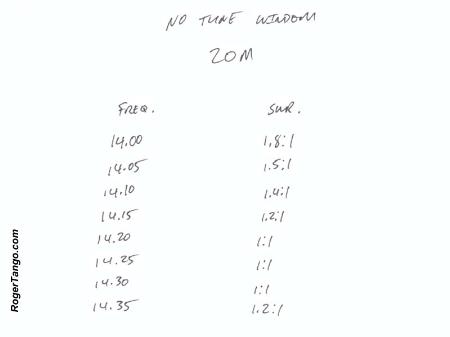 NO TUNE WINDOM
20M
FREQ. SWR.
14.00 1.8:1
14.05 1.5:1
14.10 1.4:1
14.15 1.2:1
14.20 1:1
14.25 1:1
14.30 1:1
14.35 1.2:1
RogerTango.com